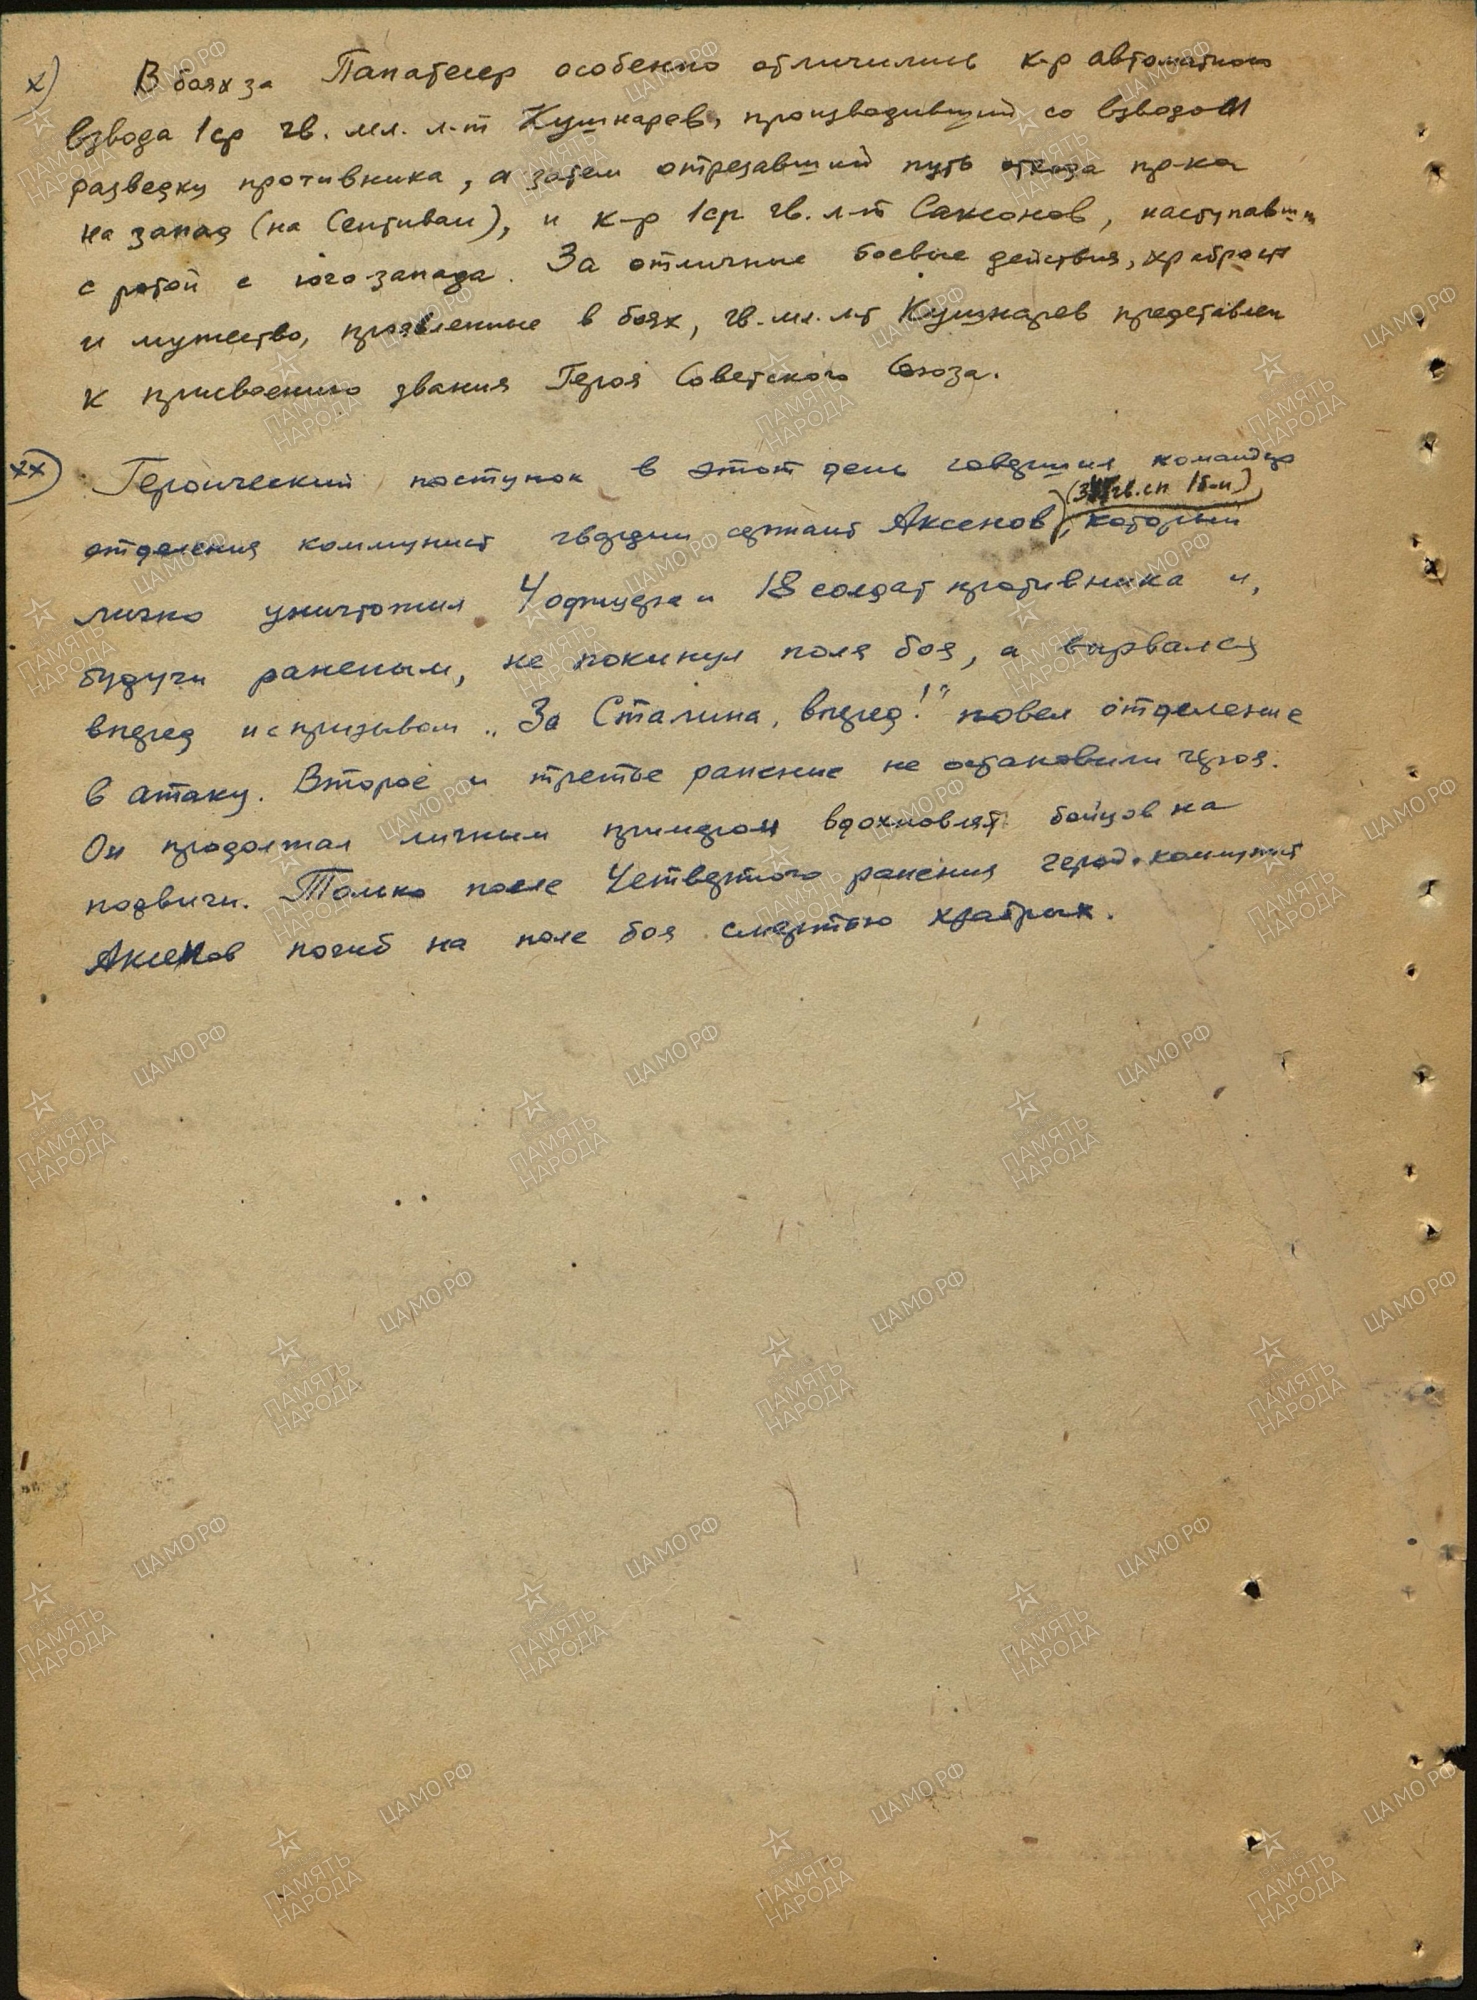 х) В боях за Папатесер особенно отличились к-р автоматного
взвода 1ср гв. мл. л-т Кушнарев, производивший со взводом
разведку противника, а затем отрезавший путь отхода пр-ка
на запад (на Сентиван), и к-р 1ср гв. л-т Саксонов, наступавший
с ротой с юго запада. За отличные боевые действия, храбрость
и мужество, проявленные в боях, гв. мл. л-т Кушнарев представлен
к присвоению звания Героя Советского Союза.
хх) Героический поступок в этот день совершил командир
(гв. сп 1б-н)
отделения коммунист гвардии сержант Аксенов, который
лично уничтожил 4 офицера и 18 солдат противника и,
будучи раненым, не покинул поля боя, а вырвался
вперед и с призывом „За Сталина, вперед!" повел отделение
в атаку. Второе и третье ранение не остановили героя.
Он продолжал личным примером вдохновлять бойцов на
подвиги. Только после четвертого ранения герой-коммунист
Аксенов погиб на поле боя смертью храбрых.